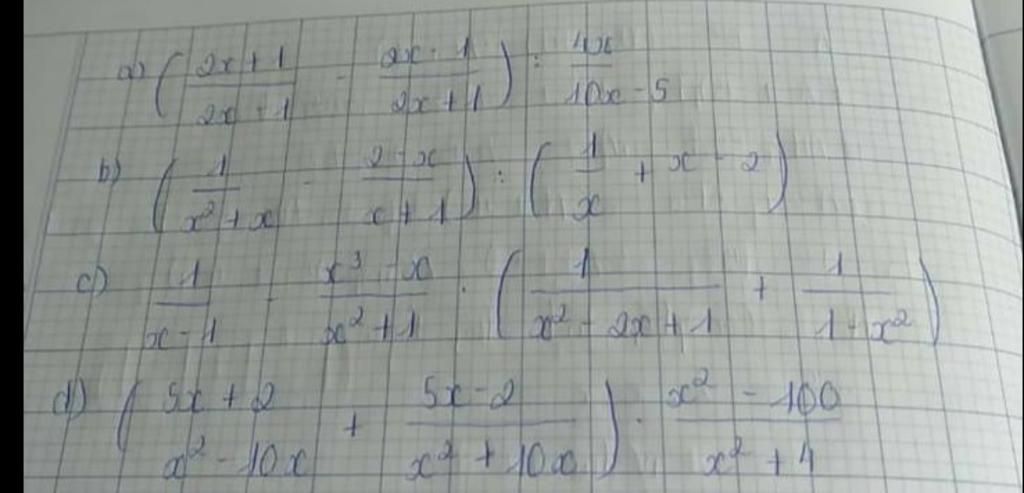 a) ( (2x+1)/(2x-1) - (2x-1)/(2x+1) ) : 4x/(10x-5)
b) ( 1/(x²+x) - (2-x)/(x+1) ) : ( 1/x + x - 2 )
c) 1/(x-1) - (x³-x)/(x²+1) · ( 1/(x²-2x+1) + 1/(1-x²) )
d) ( (5x+2)/(x²-10x) + (5x-2)/(x²+10x) ) · (x²-100)/(x²+4)